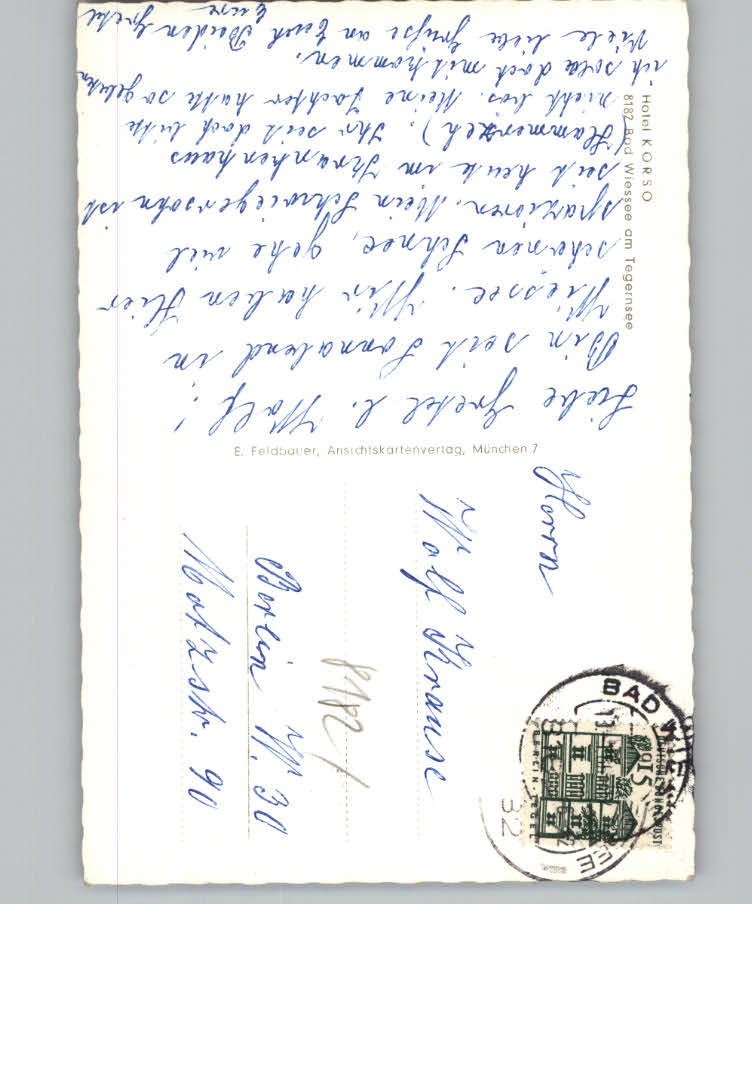 Hotel KORSO
8182 Bad Wiessee am Tegernsee
Liebe Gretel u. Wolf!
Bin seit Sonnabend in
Wiessee. Wir haben hier
schönen Schnee, gehe viel
spazieren. Mein Schwiegersohn ist
seit heute im Krankenhaus
Ihr seit doch bitte
nicht bös. Meine Tochter hatte so gebeten
ich solle doch mitkommen.
Viele liebe Grüße an Euch Beiden
Eure Gretel
E. Feldbauer, Ansichtskartenverlag, München 7
Herrn
Wolf Krause
8182
Berlin W. 30
Motzstr. 90
BAD WIESSEE
15
DEUTSCHE BUNDESPOST
BERLIN TEGEL
32